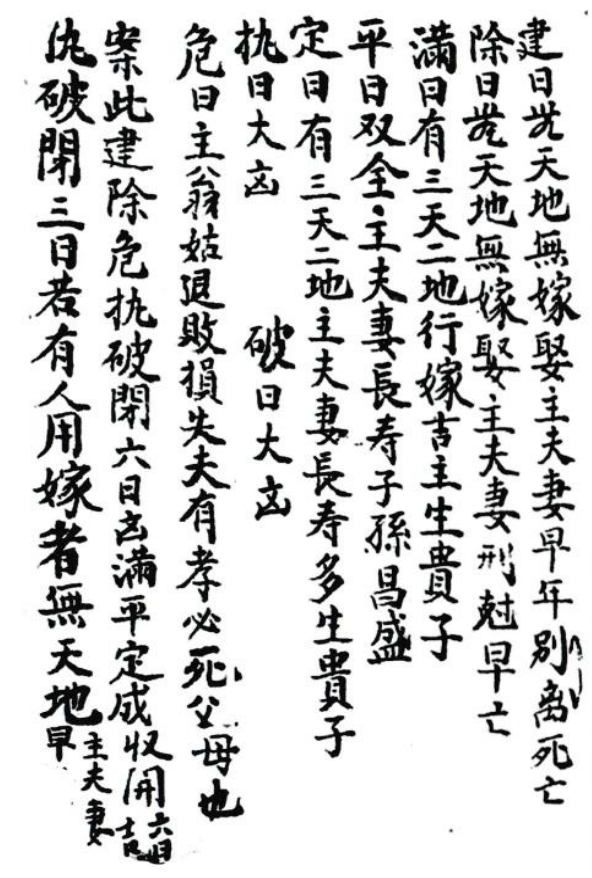 建日旡天地無嫁娶主夫妻早年別离死亡
除日旡天地無嫁娶主夫妻刑尅早亡
滿日有三天二地行嫁吉主生貴子
平日双全主夫妻長寿子孫昌盛
定日有三天二地主夫妻長寿多生貴子
执日大凶 破日大凶
危日主翁姑退敗損失夫有孝必死父母也
案此建除危执破閉六日凶滿平定成收開六日吉
仇破閉三日若有人用嫁者無天地主夫妻早